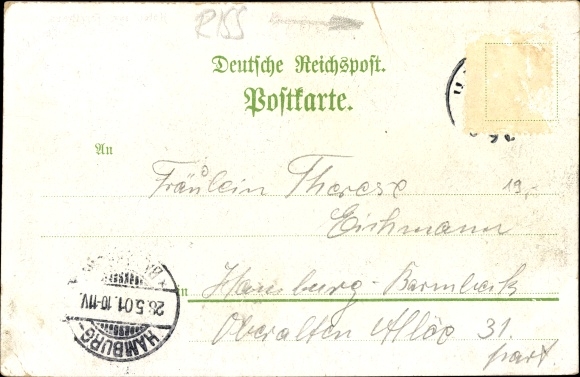 RISS
Deutsche Reichspost.
Postkarte.
An
Fräulein Therese
19,-
Eichmann
in Hamburg-Barmbeck
Oberalten Allee 31
part
26.5.01.10-11V.
HAMBURG